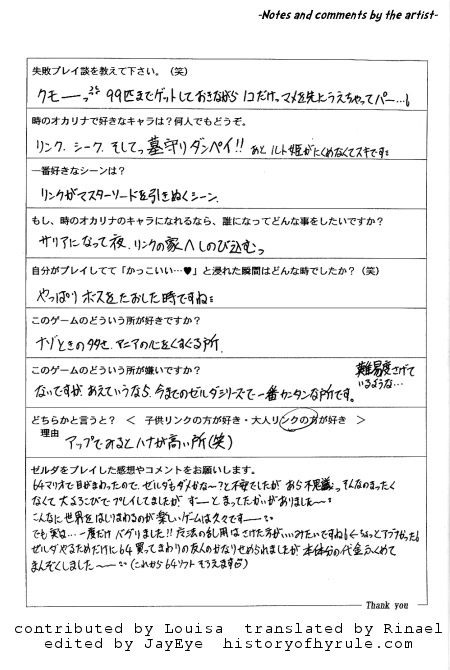 -Notes and comments by the artist-
失敗プレイ談を教えて下さい。（笑）
クモーっ 99匹までゲットしておきながら 1コだけ、マメを先にうえちゃってパー…！
時のオカリナで好きなキャラは？何人でもどうぞ。
リンク、シーク、そしてっ墓守りダンペイ!! あと ルト姫がたくめなくてスキです
一番好きなシーンは？
リンクがマスターソードを引きぬくシーン。
もし、時のオカリナのキャラになれるなら、誰になってどんな事をしたいですか？
サリアになって夜、リンクの家へしのび込むっ
自分がプレイしてて「かっこいい…♥」と浸れた瞬間はどんな時でしたか？（笑）
やっぱり ボスをたおした時ですね
このゲームのどういう所が好きですか？
ナゾときの多さ、マニアの心をくすぐる所。
このゲームのどういう所が嫌いですか？
難易度さげているような…
ないですが、あえていうなら、今までのゼルダシリーズで一番カンタンな所です。
どちらかと言うと？ ＜ 子供リンクの方が好き・大人リンクの方が好き ＞
理由
アップでみるとハナが高い所（笑）
ゼルダをプレイした感想やコメントをお願いします。
64マリオで目がまわったので、ゼルダもダメかな～？と不安でしたが あら不思議っ そんなのまったく
なくて 大よろこびで プレイしてましたが、ずーっと まってたかいがありました～
こんなに世界を はしりまわるのが楽しいゲームは久々ですー
でも実は… 一度だけ バグりました!! 魔法の乱用はさけた方がいいみたいですね！
ゼルダやるためだけに64買って まわりの友人のかなりせめられましたが、本体分の代金ふくめて
まんぞくしました～（これから64ソフト そろえます）
Thank you
contributed by Louisa translated by Rinael
edited by JayEye historyofhyrule.com